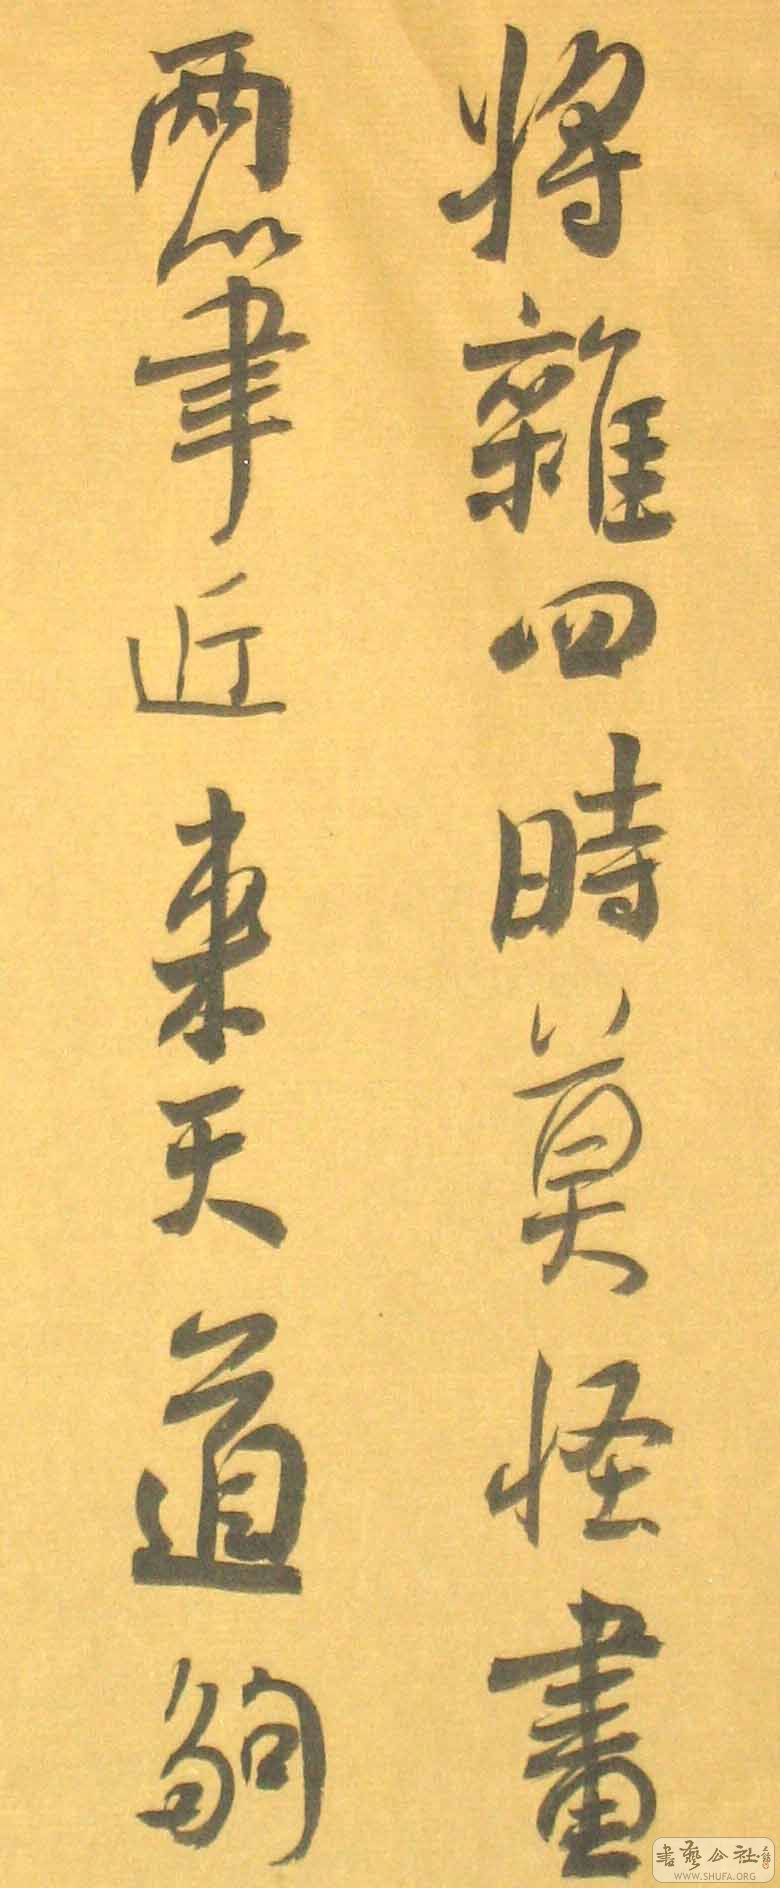 將雜四時莫怪畫
两筆近來天道夠
書藝公社
WWW.SHUFA.ORG